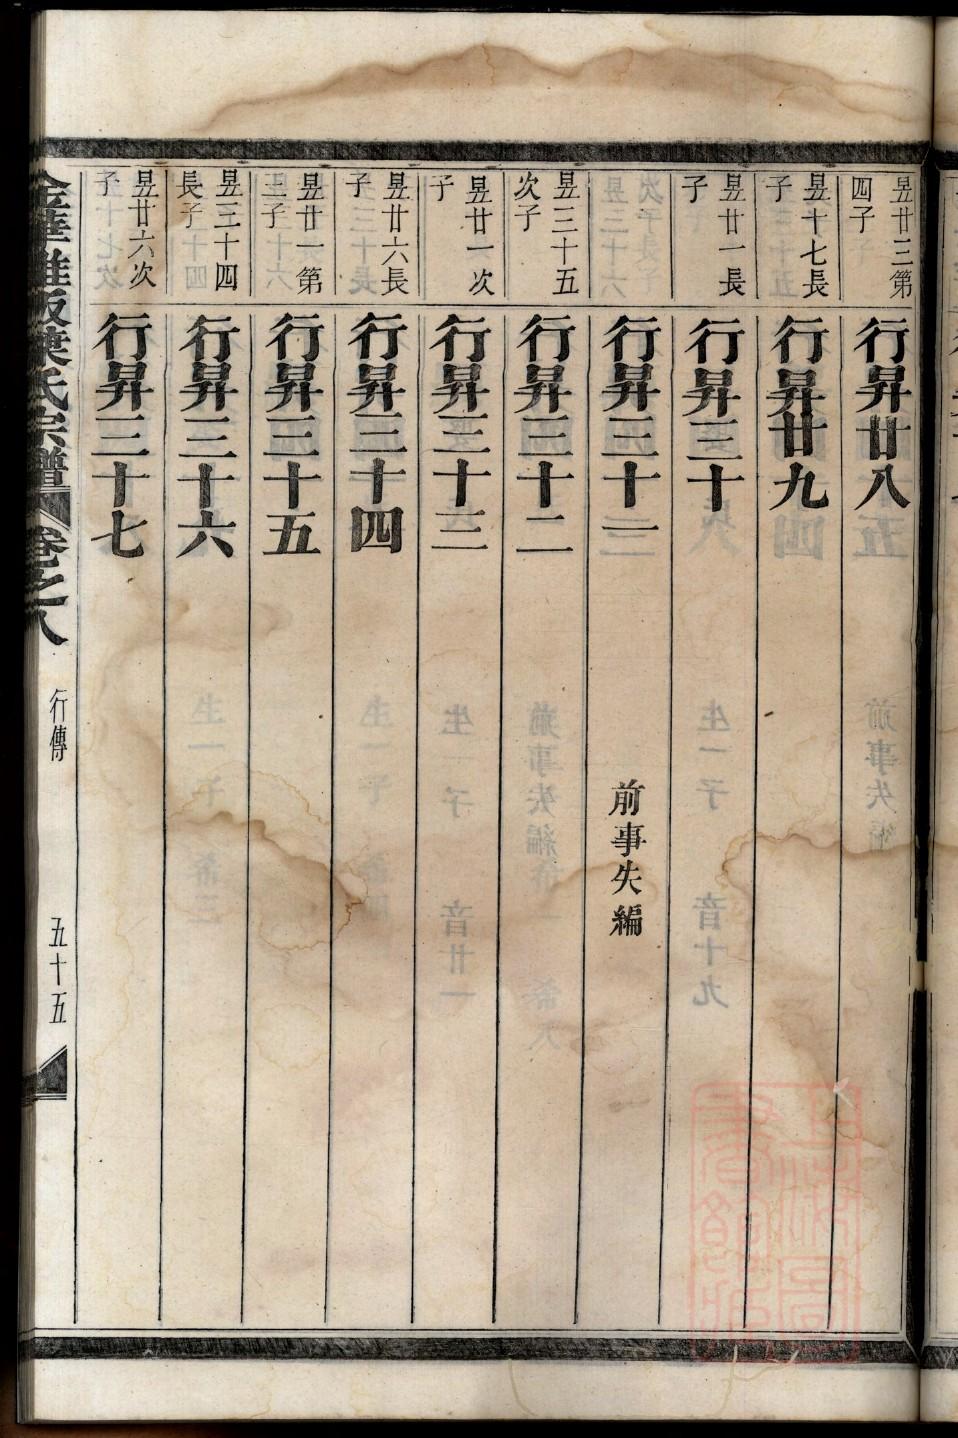 昱廿三第四子
行昇廿八
昱十七長子
行昇廿九
昱廿一長子
行昇三十
行昇三十一
前事失編
昱三十五次子
行昇三十二
昱廿一次子
行昇三十三
昱廿六長子
行昇三十四
昱廿一第三子
行昇三十五
昱三十四長子
行昇三十六
昱廿六次子
行昇三十七
金華 葉氏宗譜 卷之八 行傳 五十五